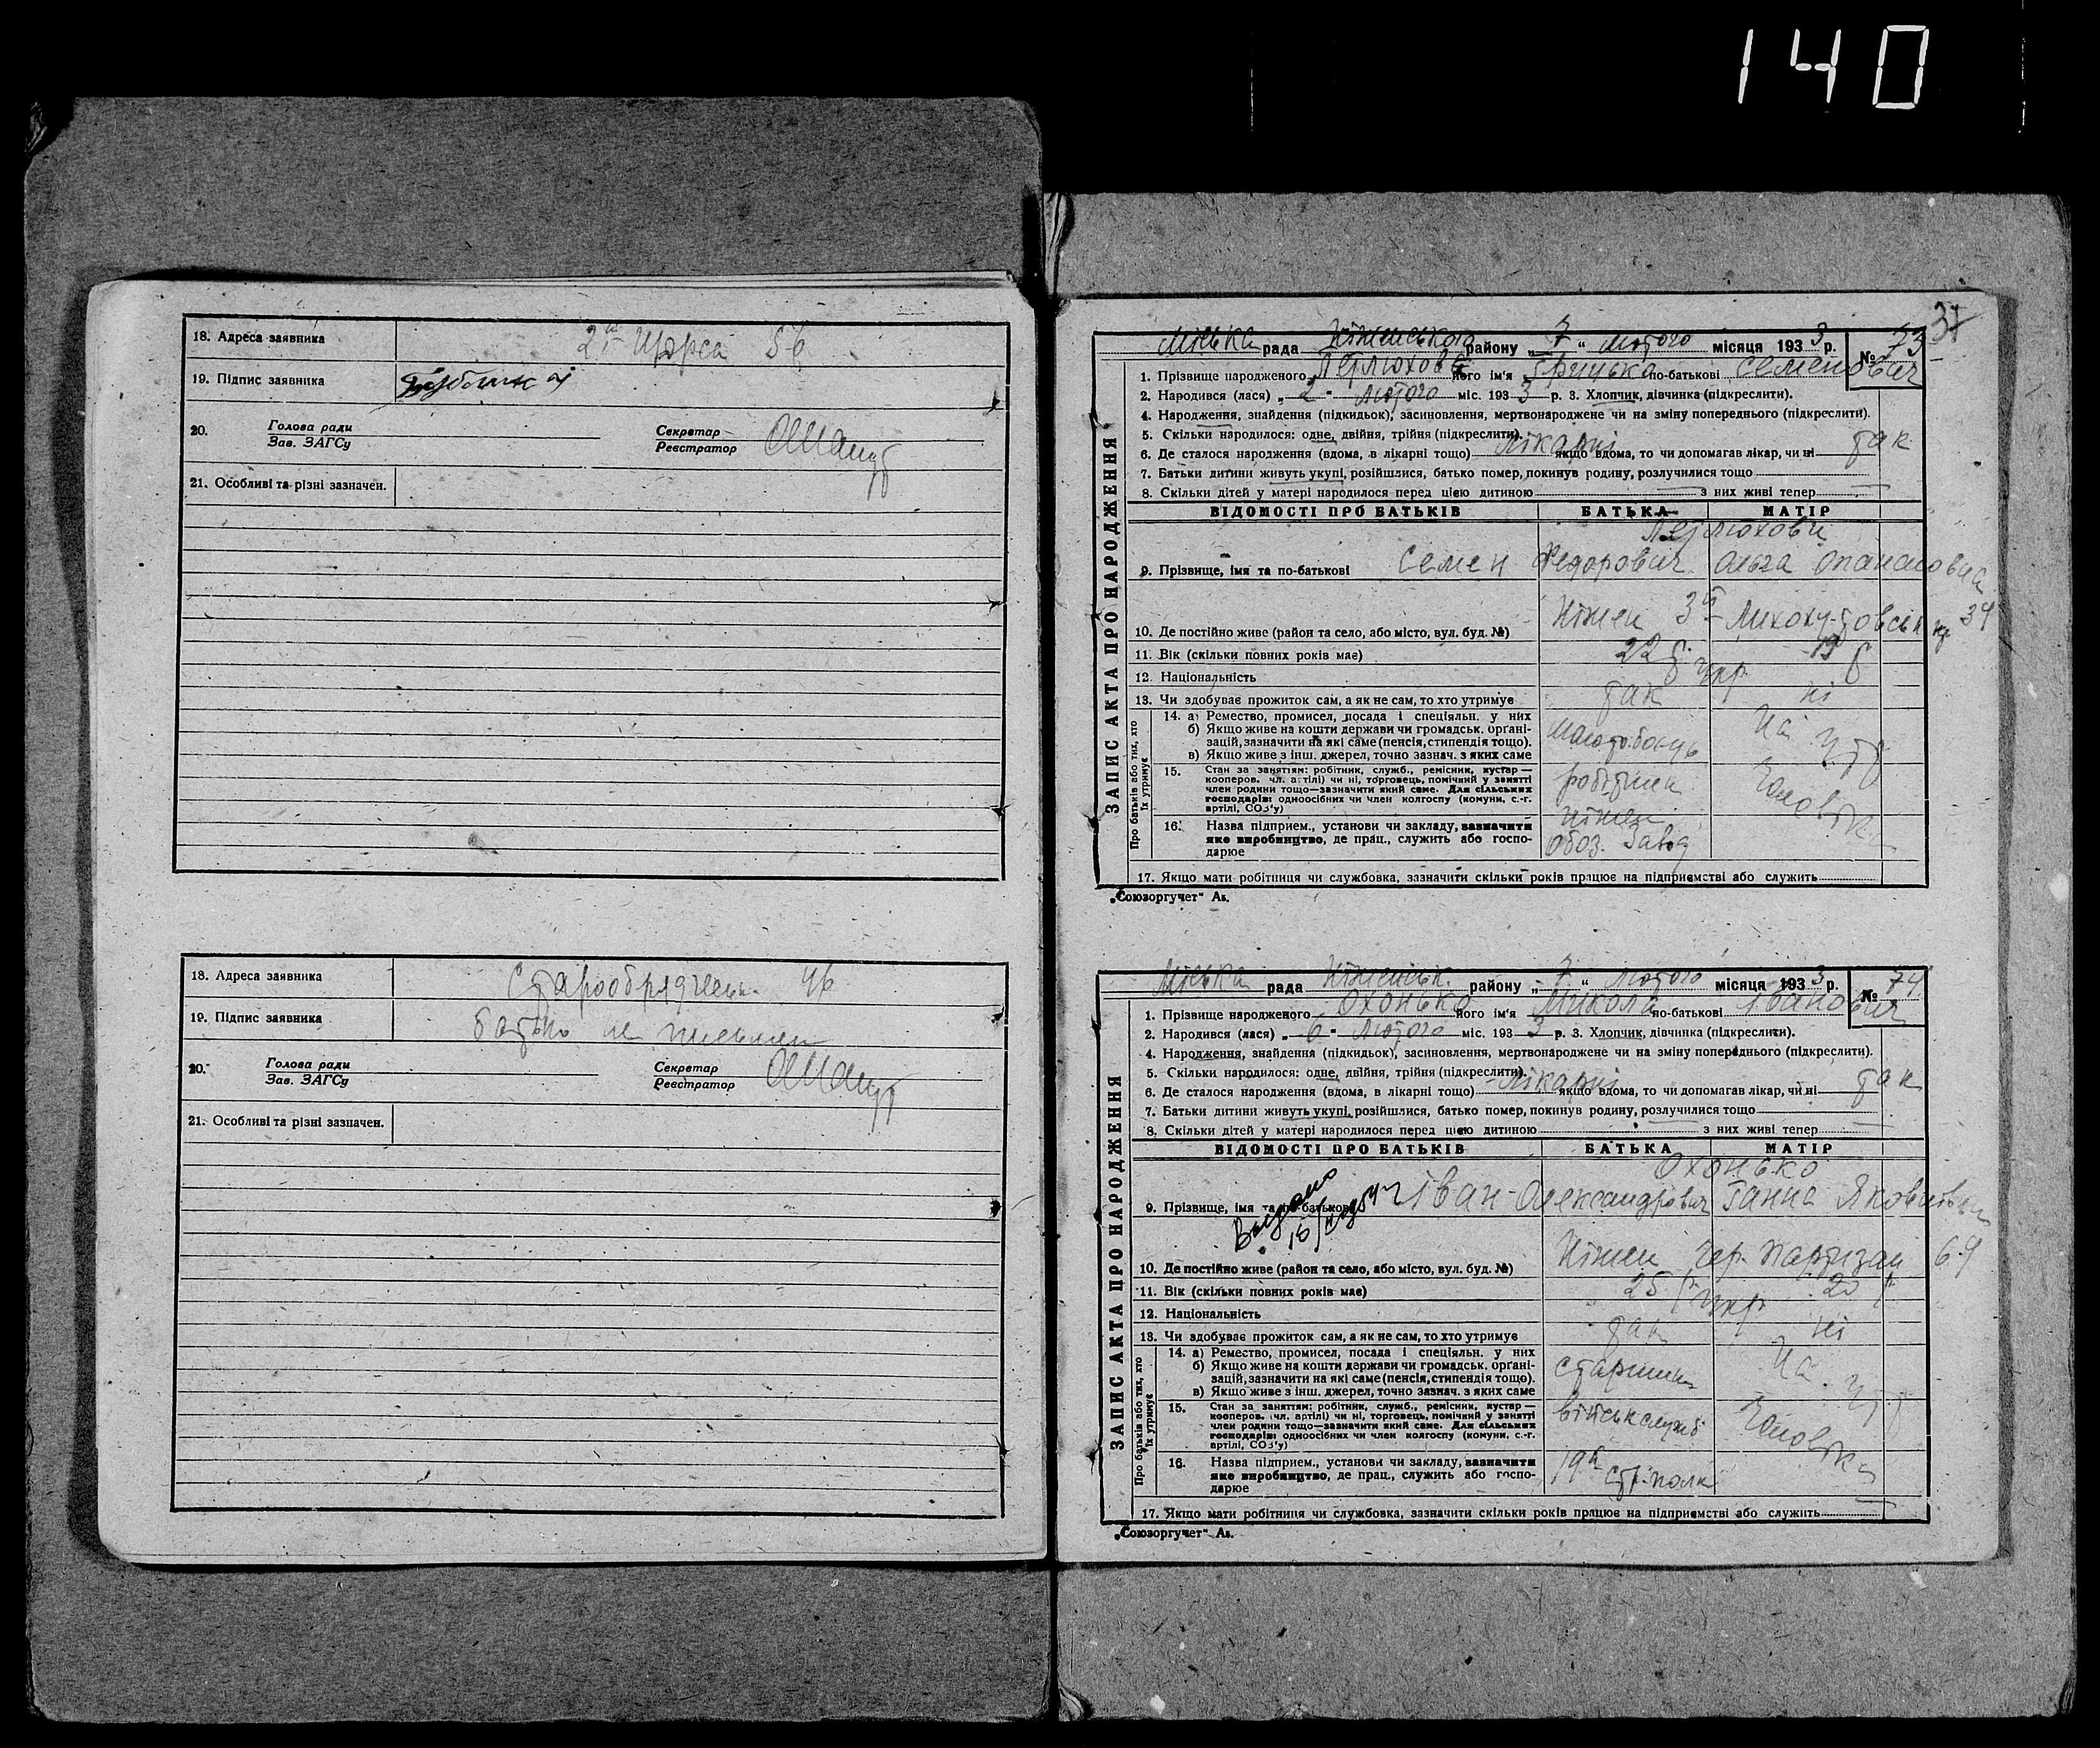 140
18. Адреса заявника 2й Щорса 56
19. Підпис заявника
20. Голова ради
Зав. ЗАГСу
Секретар
Реєстратор
21. Особливі та різні зазначен.
18. Адреса заявника Старообрядчеськ. 46
19. Підпис заявника батько не письмен
20. Голова ради
Зав. ЗАГСу
Секретар
Реєстратор
21. Особливі та різні зазначен.
37
Міська рада Ніженського району „ 7 “ лютого місяця 1933 р. № 73
ЗАПИС АКТА ПРО НАРОДЖЕННЯ
1. Прізвище народженого його ім'я Грицька по-батькові Семенович
2. Народився (лася) „ 2 " лютого міс. 1933 р. 3. Хлопчик, дівчинка (підкреслити).
4. Народження, знайдення (підкидьок), засиновлення, мертвонароджене чи на зміну попереднього (підкреслити).
5. Скільки народилося: одне, двійня, трійня (підкреслити).
6. Де сталося народження (вдома, в лікарні тощо) лікарні якщо вдома, то чи допомагав лікар, чи ні так
7. Батьки дитини живуть укупі, розійшлися, батько помер, покинув родину, розлучилися тощо
8. Скільки дітей у матері народилося перед цією дитиною з них живі тепер
ВІДОМОСТІ ПРО БАТЬКІВ БАТЬКА МАТІР
9. Прізвище, імя та по-батькові Семен Федорович Ольга Опанасовна
10. Де постійно живе (район та село, або місто, вул. буд. №) Ніжен 3й 34
11. Вік (скільки повних років має) 22 р. 19 р
12. Національність укр.
13. Чи здобуває прожиток сам, а як не сам, то хто утримує так ні
Про батьків або тих, хто їх утримує
14. а) Ремество, промисел, посада і спеціяльн. у них
б) Якщо живе на кошти держави чи громадськ. органі-
зацій, зазначити на які саме (пенсія, стипендія тощо).
в) Якщо живе з інш. джерел, точно зазнач. з яких саме
молотобоєць на утр
15. Стан за заняттям: робітник, служб., ремісник, кустар —
кооперов. чл. артілі) чи ні, торговець, помічний у занятті
член родини тощо—зазначити який саме. Для сільських
господарів: одноосібних чи член колгоспу (комуни, с.-г.
артілі, СОЗ'у)
робітник чоловіка
16. Назва підприєм., установи чи закладу, зазначити
яке виробництво, де прац., служить або госпо-
дарює
Ніжен
обоз. завод
17. Якщо мати робітниця чи службовка, зазначити скільки років працює на підприємстві або служить
„Союзоргучет“ Аз.
Міська рада Ніженськ. району „ 7 “ лютого місяця 1933 р. № 74
ЗАПИС АКТА ПРО НАРОДЖЕННЯ
1. Прізвище народженого Охонько його ім'я Микола по-батькові Іванович
2. Народився (лася) „ 6 " лютого міс. 1933 р. 3. Хлопчик, дівчинка (підкреслити).
4. Народження, знайдення (підкидьок), засиновлення, мертвонароджене чи на зміну попереднього (підкреслити).
5. Скільки народилося: одне, двійня, трійня (підкреслити).
6. Де сталося народження (вдома, в лікарні тощо) лікарні якщо вдома, то чи допомагав лікар, чи ні так
7. Батьки дитини живуть укупі, розійшлися, батько помер, покинув родину, розлучилися тощо
8. Скільки дітей у матері народилося перед цією дитиною з них живі тепер
ВІДОМОСТІ ПРО БАТЬКІВ БАТЬКА МАТІР
Охонько
9. Прізвище, імя та по-батькові Іван Олександрович Ганна Яковлівна
Видано
10. Де постійно живе (район та село, або місто, вул. буд. №) Ніжен Чер. Партизан 69
11. Вік (скільки повних років має) 25 р. 23 р.
12. Національність укр.
13. Чи здобуває прожиток сам, а як не сам, то хто утримує так ні
Про батьків або тих, хто їх утримує
14. а) Ремество, промисел, посада і спеціяльн. у них
б) Якщо живе на кошти держави чи громадськ. органі-
зацій, зазначити на які саме (пенсія, стипендія тощо).
в) Якщо живе з інш. джерел, точно зазнач. з яких саме
старшина на утр
15. Стан за заняттям: робітник, служб., ремісник, кустар —
кооперов. (чл. артілі) чи ні, торговець, помічний у занятті
член родини тощо—зазначити який саме. Для сільських
господарів: одноосібних чи член колгоспу (комуни, с.-г.
артілі, СОЗ'у)
військслужб чоловіка
16. Назва підприєм., установи чи закладу, зазначити
яке виробництво, де прац., служить або госпо-
дарює
19й стр. полк
17. Якщо мати робітниця чи службовка, зазначити скільки років працює на підприємстві або служить
„Союзоргучет“ Аз.